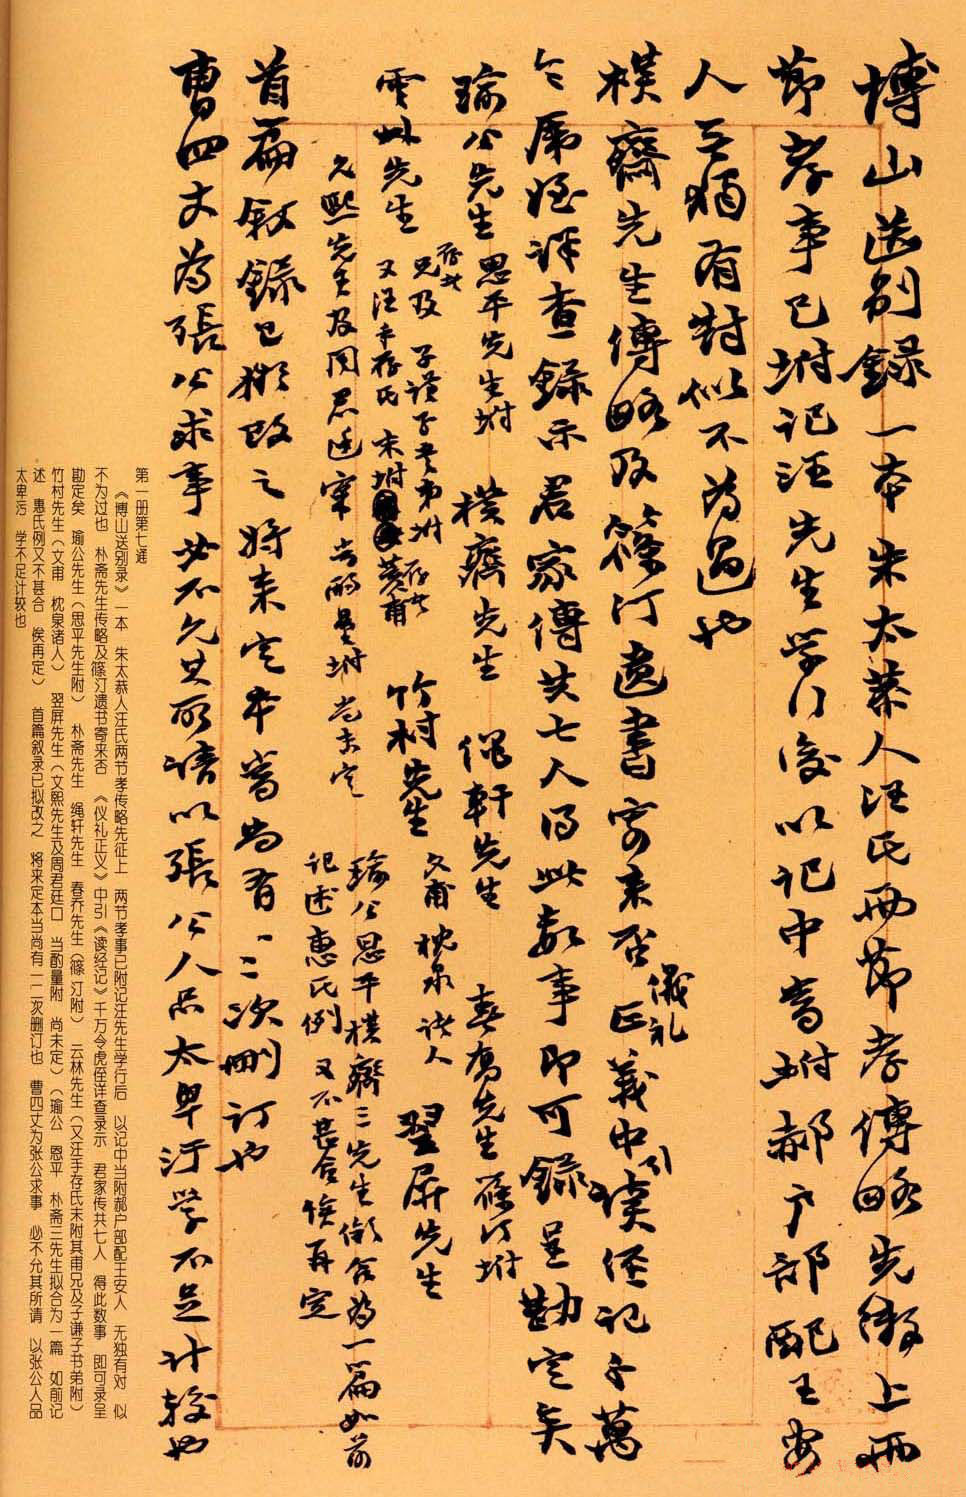 博山送别錄一本朱太恭人汪氏两節孝傳略先徵上两
節孝事已坿记汪先生学行後以记中當坿郝户部配王安
人无獨有對似不為過也
樸齋先生傳略及篠汀遗書寄来否儀礼正義中引读经记千萬
令虎姪详查録示君家傳共七人得此数事即可録呈勘定矣
瑜公先生思平先生坿 樸齋先生 绳軒先生 春喬先生篠汀坿
雲林先生 又汪氏 存氏末坿 兄及子谦子书弟坿 竹村先生文甫枕泉诸人 翌屏先生
文熙先生及周君廷 當酌量坿尚未定 瑜公思平樸齋三先生擬合為一篇如前
记述惠氏例又不甚合俟再定
首篇敘錄已擬改之将来定本當尚有一二次删订也
曹四丈為張公求事必不允其所請以張公人品太卑汙学不足计较也
第一册第七通
《博山送别录》一本 朱太恭人汪氏两节孝传略先征上 两节孝事已附记汪先生学行后 以记中当附郝户部配王安人 无独有对 似
不为过也 朴斋先生传略及篠汀遗书寄来否 《仪礼正义》中引《读经记》千万令虎侄详查录示 君家传共七人 得此数事 即可录呈
勘定矣 瑜公先生（思平先生附） 朴斋先生 绳轩先生 春乔先生（篠汀附） 云林先生（又汪手存氏末附其甫兄及子谦子书弟附）
竹村先生（文甫 枕泉诸人） 翌屏先生（文熙先生及周君廷口 当酌量附 尚未定）（瑜公 恩平 朴斋三先生拟合为一篇 如前记
述 惠氏例又不甚合 俟再定） 首篇叙录已拟改之 将来定本当尚有一二次删订也 曹四丈为张公求事 必不允其所请 以张公人品
太卑污 学不足计较也